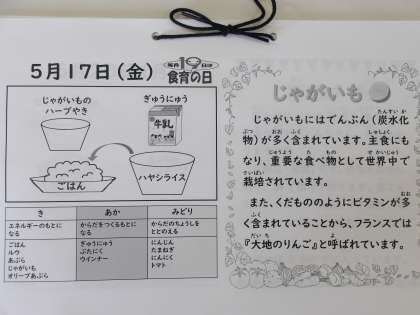 5月17日(金)
毎月19日は
食育の日
じゃがいもの
ハーブやき
ぎゅうにゅう
牛乳
ごはん
ハヤシライス
き
あか
みどり
エネルギーのもとに
なる
からだをつくるもとに
なる
からだのちょうしを
ととのえる
ごはん
ルウ
あぶら
じゃがいも
オリーブあぶら
ぎゅうにゅう
ぶたにく
ウインナー
にんじん
たまねぎ
にんにく
トマト
じゃがいも
じゃがいもにはでんぷん(炭水化
物)が多く含まれています。主食にも
なり、重要な食べ物として世界中で
栽培されています。
また、くだもののようにビタミンが多
く含まれていることから、フランスでは
『大地のりんご』と呼ばれています。